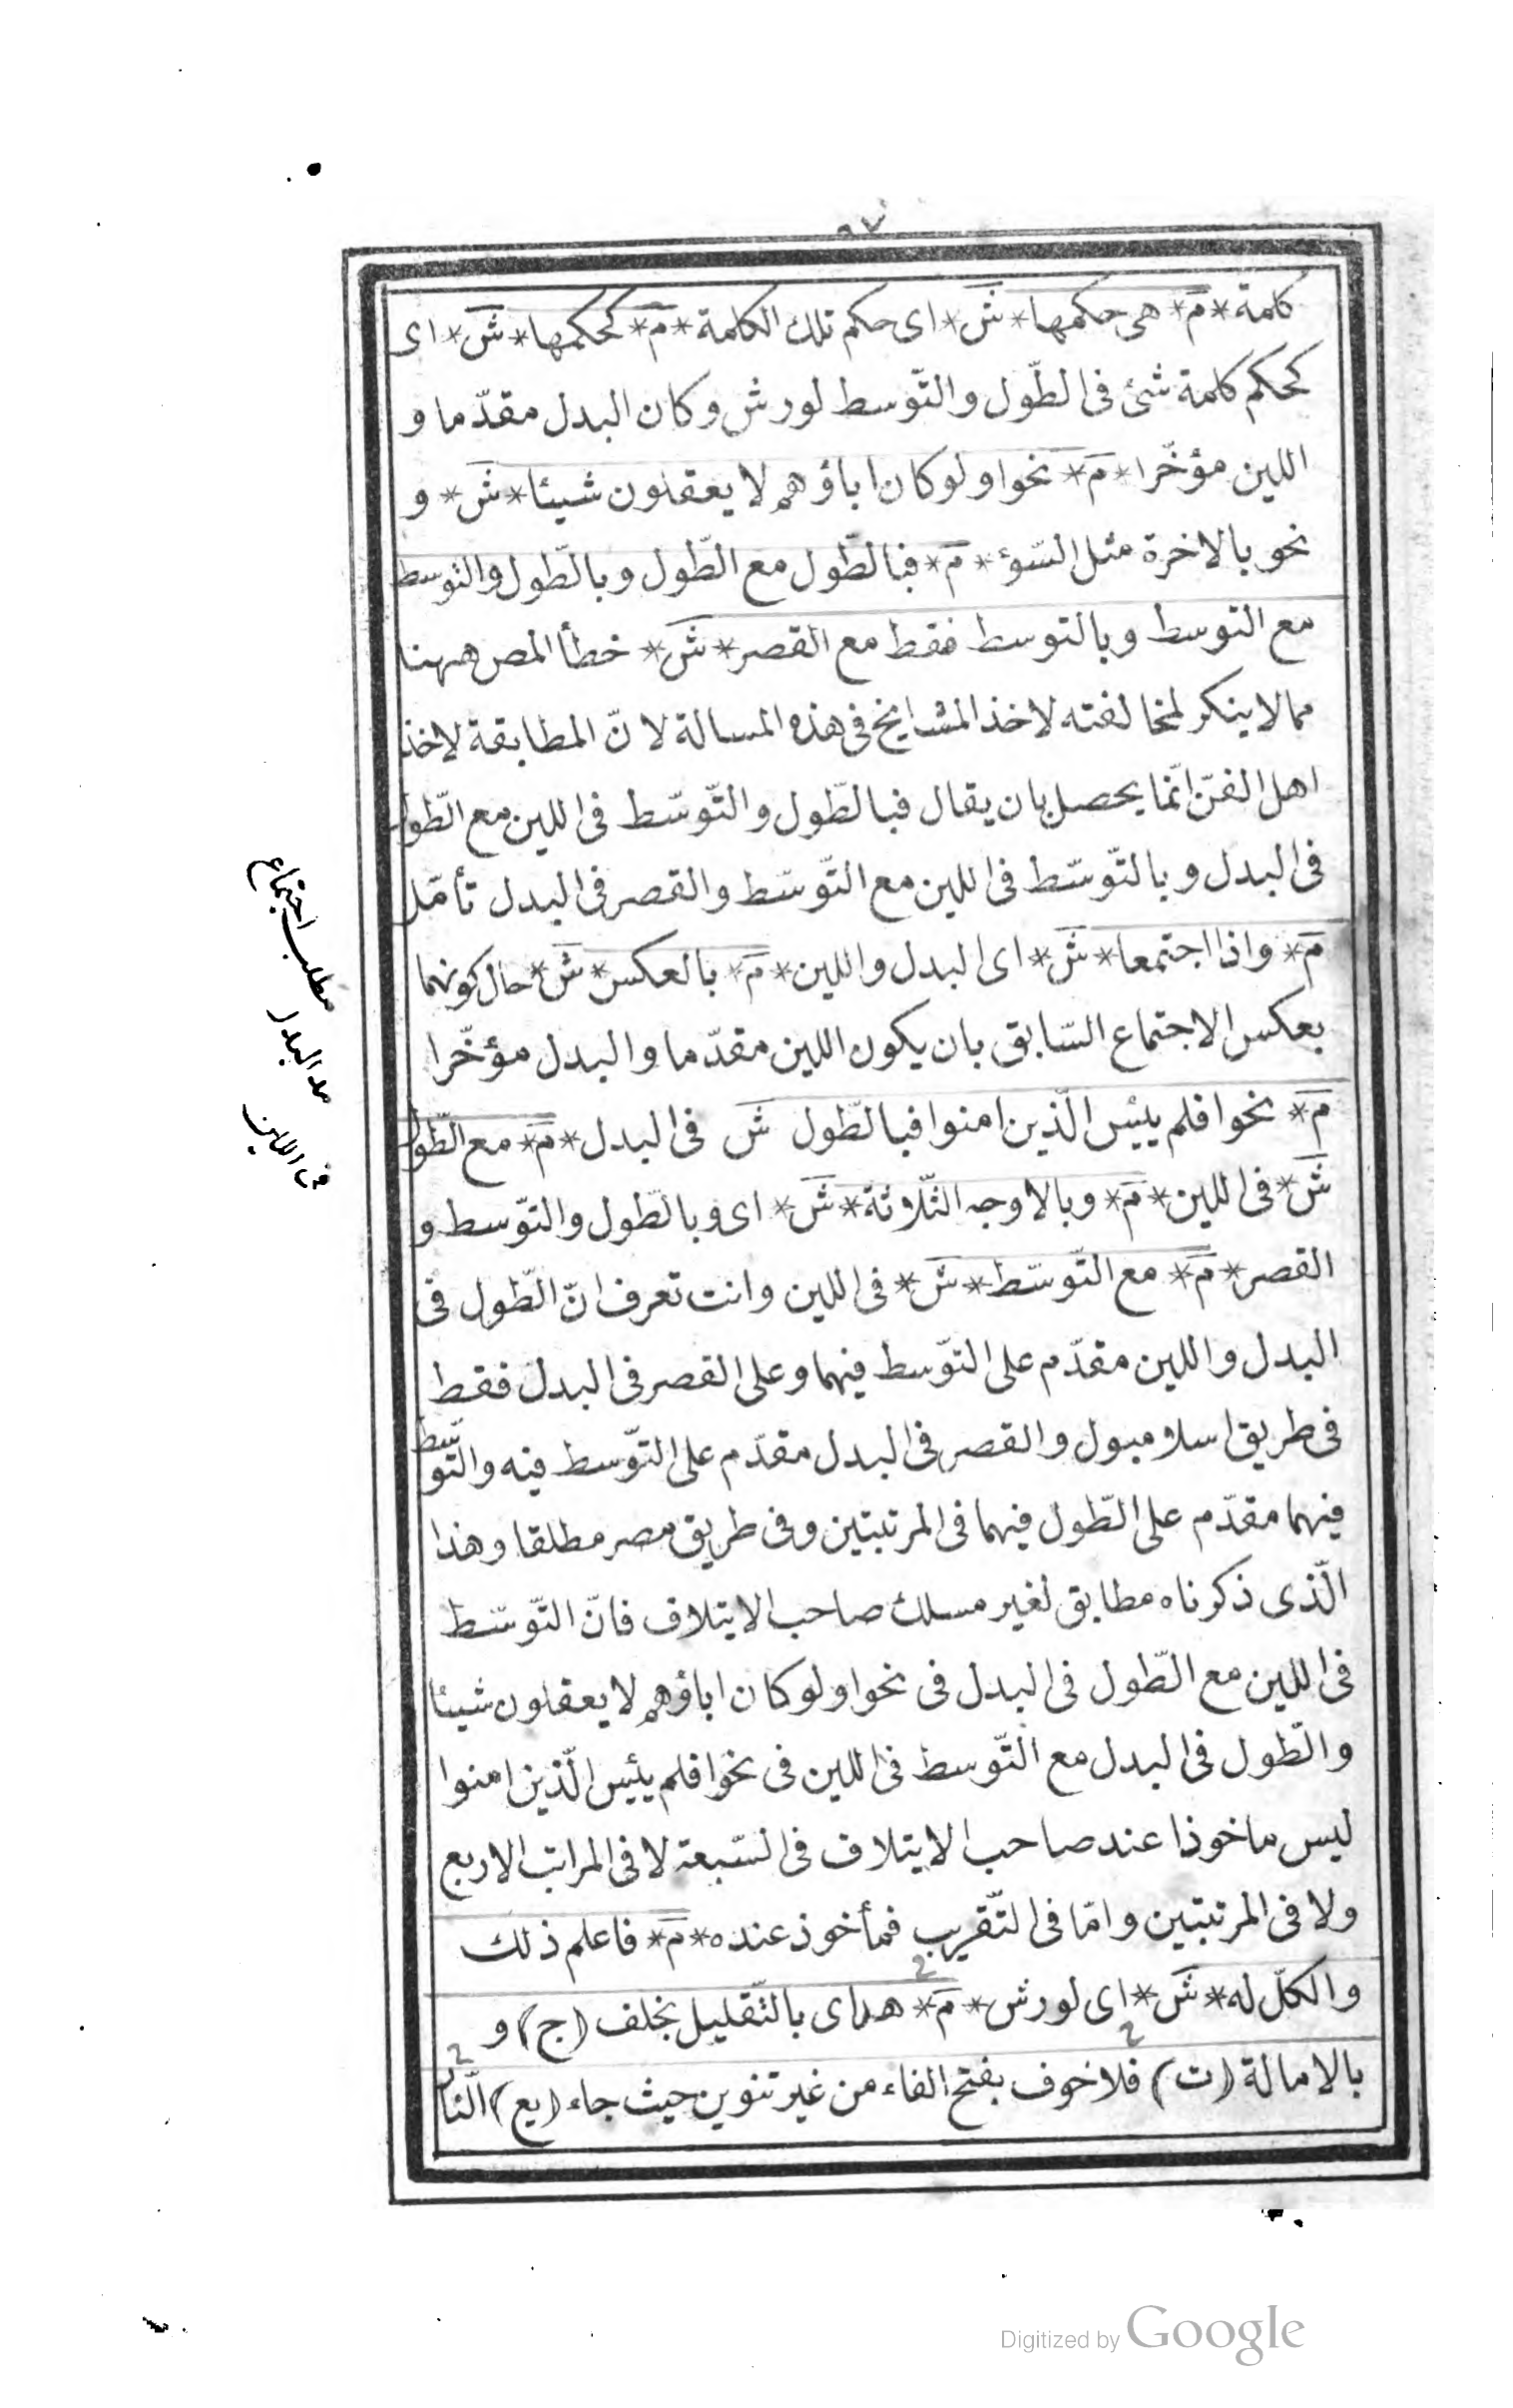 ٩٧
كلمة * م * هى حكمها * ش * اى حكم تلك الكلمة * م * كحكمها * ش * اى
كحكم كلمة شئ فى الطّول والتّوسط لورش وكان البدل مقدّما و
اللين مؤخّرا * م * نحو اولو كان اباؤهم لا يعقلون شيئا * ش * و
نحو بالاخرة مثل السّوء * م * فبالطّول مع الطّول وبالطّول والتوسط
مع التوسط وبالتوسط فقط مع القصر * ش * خطأ المص ههنا
مما لا ينكر لمخالفته لاخذ المشايخ فى هذه المسالة لانّ المطابقة لاخذ
اهل الفنّ انّما يحصل بان يقال فبالطّول والتّوسّط فى اللين مع الطّول
فى البدل وبالتّوسّط فى اللين مع التّوسّط والقصر فى البدل تأمّل
م * واذا اجتمعا * ش * اى البدل واللين * م * بالعكس * ش * حال كونهما
بعكس الاجتماع السّابق بان يكون اللين مقدّما والبدل مؤخّرا
م * نحو افلم ييئس الّذين امنوا فبالطّول ش فى البدل * م * مع الطّول
ش * فى اللين * م * وبالاوجه الثّلاثة * ش * اى وبالطّول والتّوسط و
القصر * م * مع التّوسّط * ش * فى اللين وانت تعرف انّ الطّول فى
البدل واللين مقدّم على التوّسط فيهما وعلى القصر فى البدل فقط
فى طريق اسلامبول والقصر فى البدل مقدّم على التّوسط فيه والتّوسّط
فيهما مقدّم على الطّول فيهما فى المرتبتين وفى طريق مصر مطلقا وهذا
الّذى ذكرناه مطابق لغير مسلك صاحب الايتلاف فانّ التّوسّط
فى اللين مع الطّول فى البدل فى نحو اولو كان اباؤهم لا يعقلون شيئا
والطّول فى البدل مع التّوسط فى اللين فى نحو افلم ييئس الّذين امنوا
ليس ماخوذا عند صاحب الايتلاف فى السّبعة لا فى المراتب الاربع
ولا فى المرتبتين وامّا فى التّقريب فمأخوذ عنده * م * فاعلم ذلك
والكلّ له * ش * اى لورش * م * هداى بالتّقليل بخلف (ج) و
بالامالة (ت) فلا خوف بفتح الفاء من غير تنوين حيث جاء (يع) النّار
مطلب اجتماع
مد البدل
فى اللين
Digitized by Google